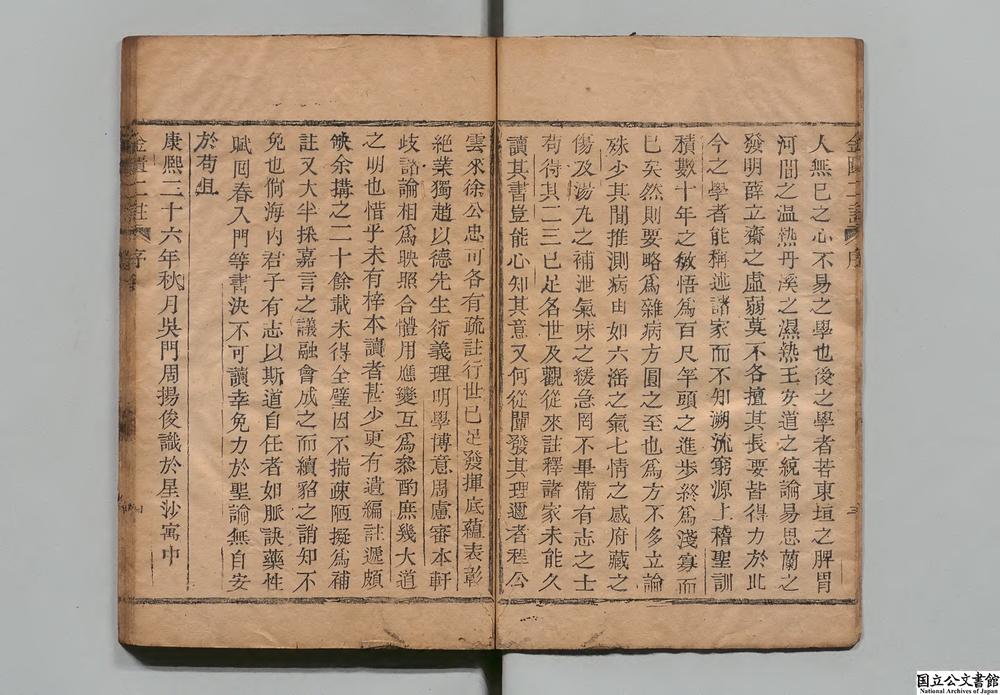 人無已之心不易之學也後之學者若東垣之脾胃
河間之温熱丹溪之濕熱王安道之統論易思蘭之
發明薛立齋之虛弱莫不各擅其長要皆得力於此
今之學者能稱述諸家而不知溯流窮源上稽聖訓
積數十年之敏悟爲百尺竿頭之進步終爲淺寡而
已矣然則要略爲雜病方圓之至也爲方不多立論
殊少其間推測病由如六滛之氣七情之感府藏之
傷及湯九之補泄氣味之緩急罔不畢備有志之士
苟得其一二三已足名世及觀從來註釋諸家未能久
讀其書豈能心知其意又何從闡發其理邇者程公
雲來徐公忠可各有疏註行世已足發揮底蘊表彰
絕業獨趙以德先生衍義理明學博意周慮審本軒
歧諮論相爲映照合體用應變互爲叅酌庶幾大道
之明也惜乎未有梓本讀者甚少更有遺編註遞頗
缺余搆之二十餘載未得全璧因不揣疎陋擬爲補
註又大半採嘉言之議融會成之而續貂之誚知不
免也倘海内君子有志以斯道自任者如脈訣藥性
賦囘春入門等書決不可讀幸免力於聖論無自安
於苟且
康熙二十六年秋月吳門周揚俊識於星沙寓中
金匱二註
序
金匱二註
序
国立公文書館
National Archives of Japan